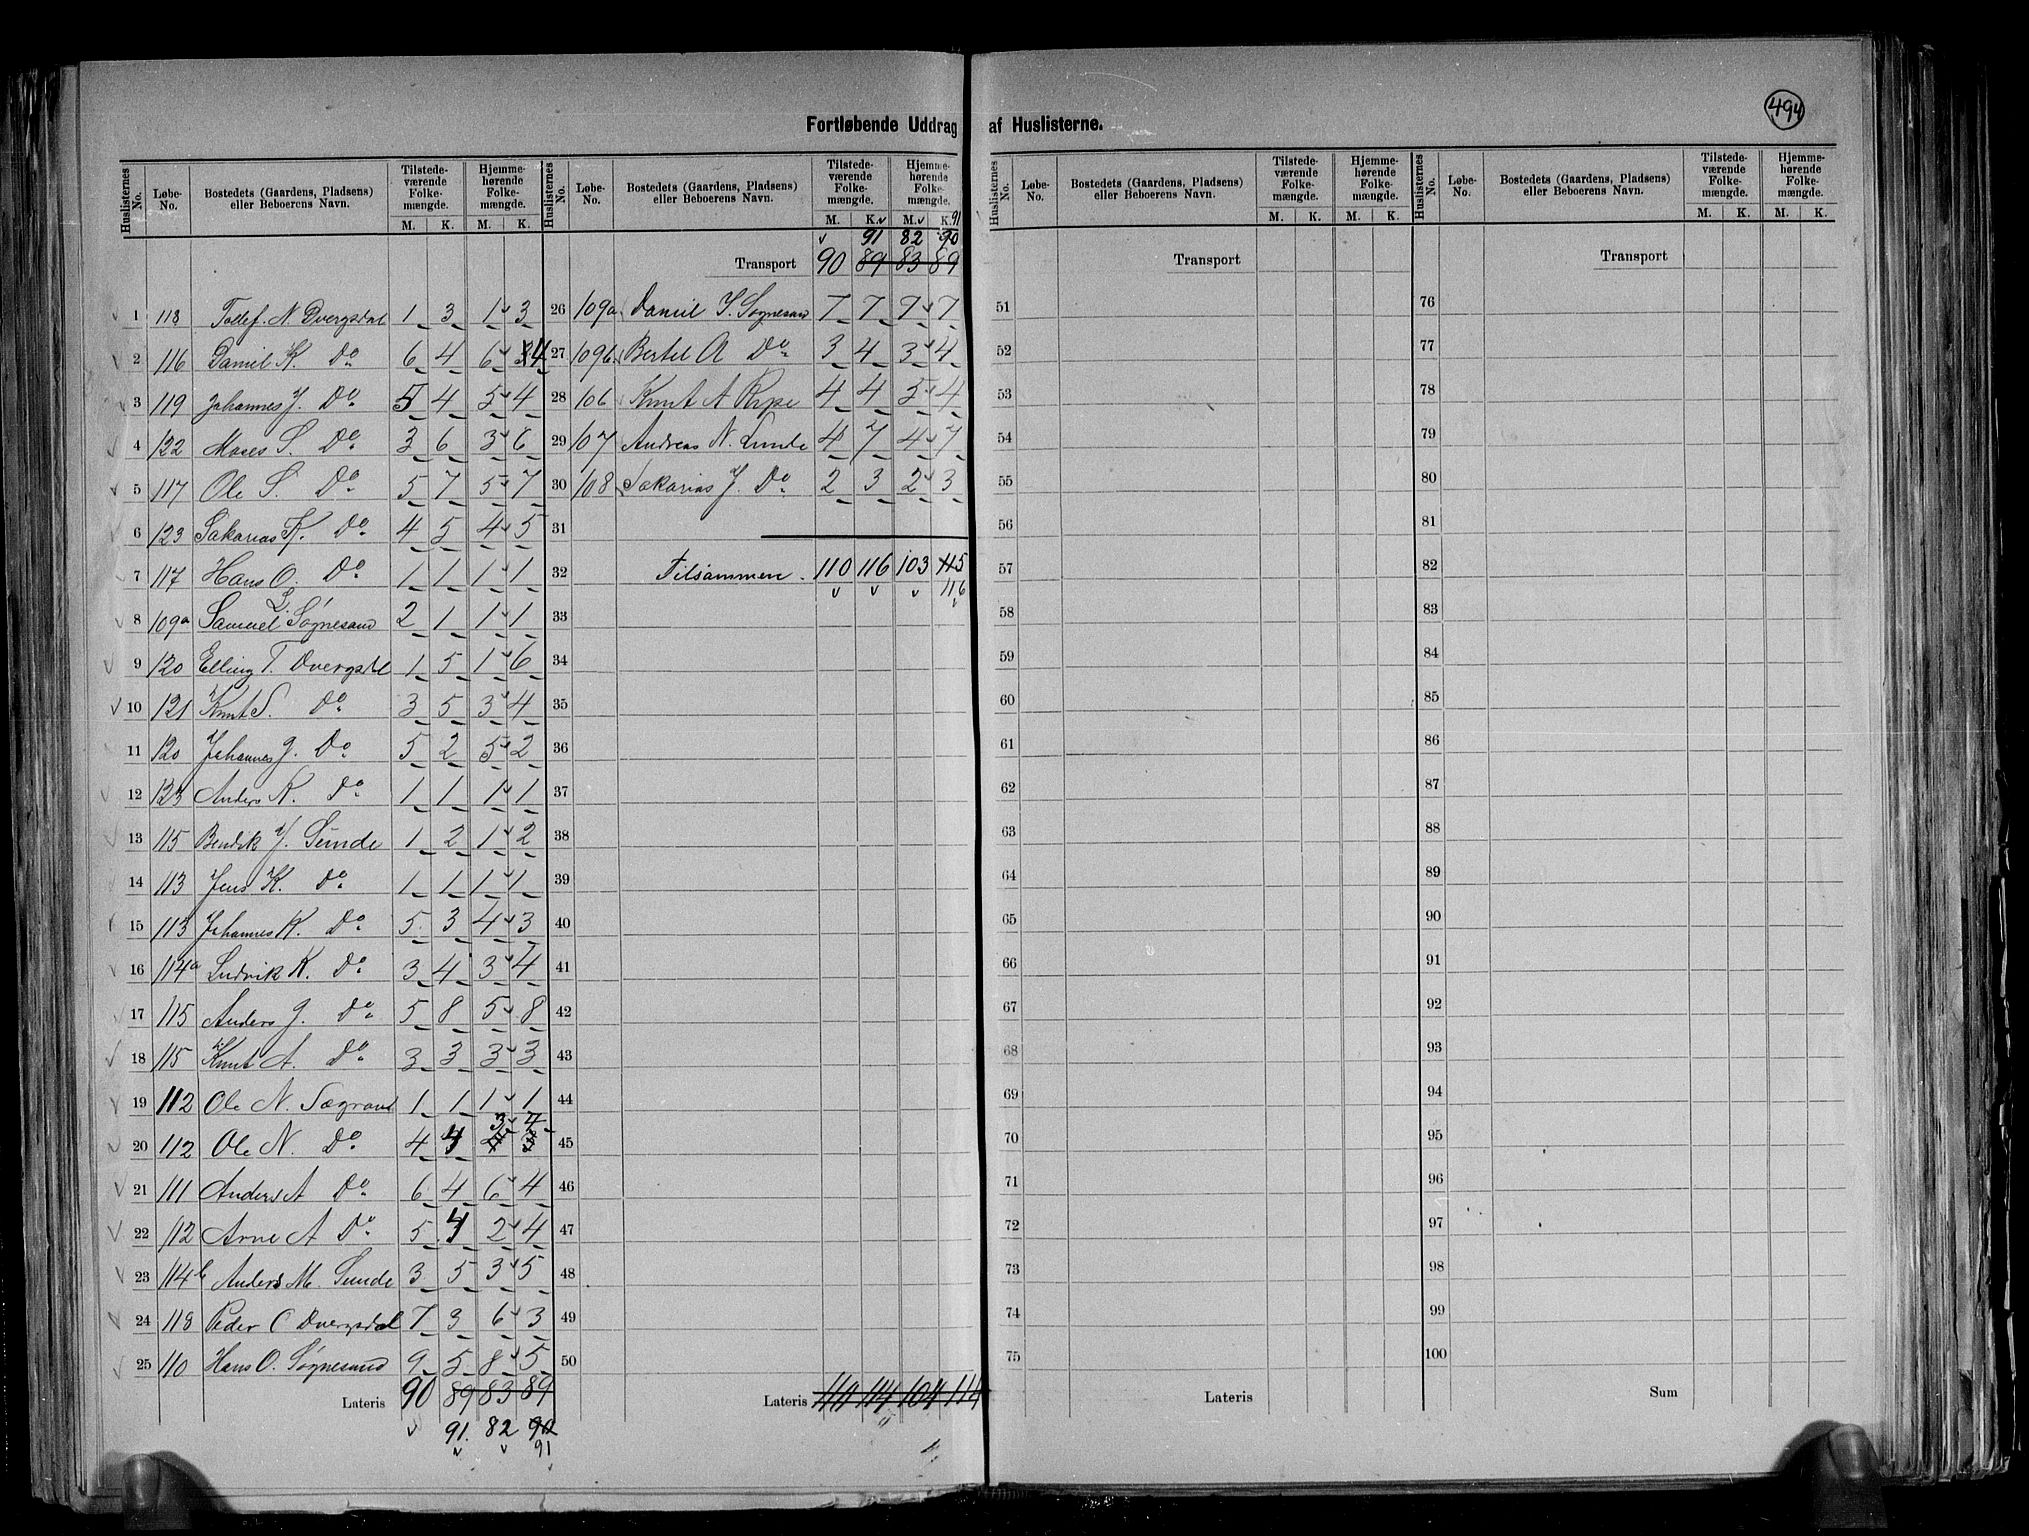 494
Fortløbende Uddrag af Huslisterne.
Huslisternes No. Løbe-No. Bostedets (Gaardens, Pladsens) eller Beboerens Navn. Tilstedeværende Folkemængde. M. K. Hjemmehørende Folkemængde. M. K.
1 118 Tollef N. Dvergsdal 1 3 1 3
2 116 Daniel K. Do 6 4 6 4
3 119 Johannes J. Do 5 4 5 4
4 122 Moses S. Do 3 6 3 6
5 117 Ole S. Do 5 7 5 7
6 123 Sakarias K. Do 4 5 4 5
7 117 Hans O. Do 1 1 1 1
8 109a Samuel L. Søgnesand 2 1 1 1
9 120 Elling T. Dvergsdal 1 5 1 6
10 121 Knut S. Do 3 5 3 4
11 120 Johannes J. Do 5 2 5 2
12 123 Anders K. Do 1 1 1 1
13 115 Bendik J. Sunde 1 2 1 2
14 113 Jens K. Do 1 1 1 1
15 113 Johannes K. Do 5 3 4 3
16 114a Ludvik K. Do 3 4 3 4
17 115 Anders J. Do 5 8 5 8
18 115 Knut A. Do 3 3 3 3
19 112 Ole N. Sægrand 1 1 1 1
20 112 Ole N. Do 4 4 3 4
21 111 Anders A Do 6 4 6 4
22 112 Arne A Do 5 4 2 4
23 114b Anders M. Sunde 3 5 3 5
24 118 Peder C Dvergsdal 7 3 6 3
25 110 Hans O. Søgnesand 9 5 8 5
Lateris 90 89 83 89
91. 82 90
91
Huslisternes No. Løbe-No. Bostedets (Gaardens, Pladsens) eller Beboerens Navn. Tilstedeværende Folkemængde. M. K. Hjemmehørende Folkemængde. M. K.
91
91 82 90
Transport 90 89 83 89
26 109a Daniel J. Søgnesand 7 7 7 7
27 109b Bertel A Do 3 4 3 4
28 106 Knut A Ripe 4 4 5 4
29 107 Andreas N. Lunde 4 7 4 7
30 108 Sakarias J. Do 2 3 2 3
31
32 Tilsammen. 110 116 103 115
116
33
34
35
36
37
38
39
40
41
42
43
44
45
46
47
48
49
50
Lateris 110 114 104 114
Huslisternes No. Løbe-No. Bostedets (Gaardens, Pladsens) eller Beboerens Navn. Tilstedeværende Folkemængde. M. K. Hjemmehørende Folkemængde. M. K.
Transport
51
52
53
54
55
56
57
58
59
60
61
62
63
64
65
66
67
68
69
70
71
72
73
74
75
Lateris
Huslisternes No. Løbe-No. Bostedets (Gaardens, Pladsens) eller Beboerens Navn. Tilstedeværende Folkemængde. M. K. Hjemmehørende Folkemængde. M. K.
Transport
76
77
78
79
80
81
82
83
84
85
86
87
88
89
90
91
92
93
94
95
96
97
98
99
100
Sum